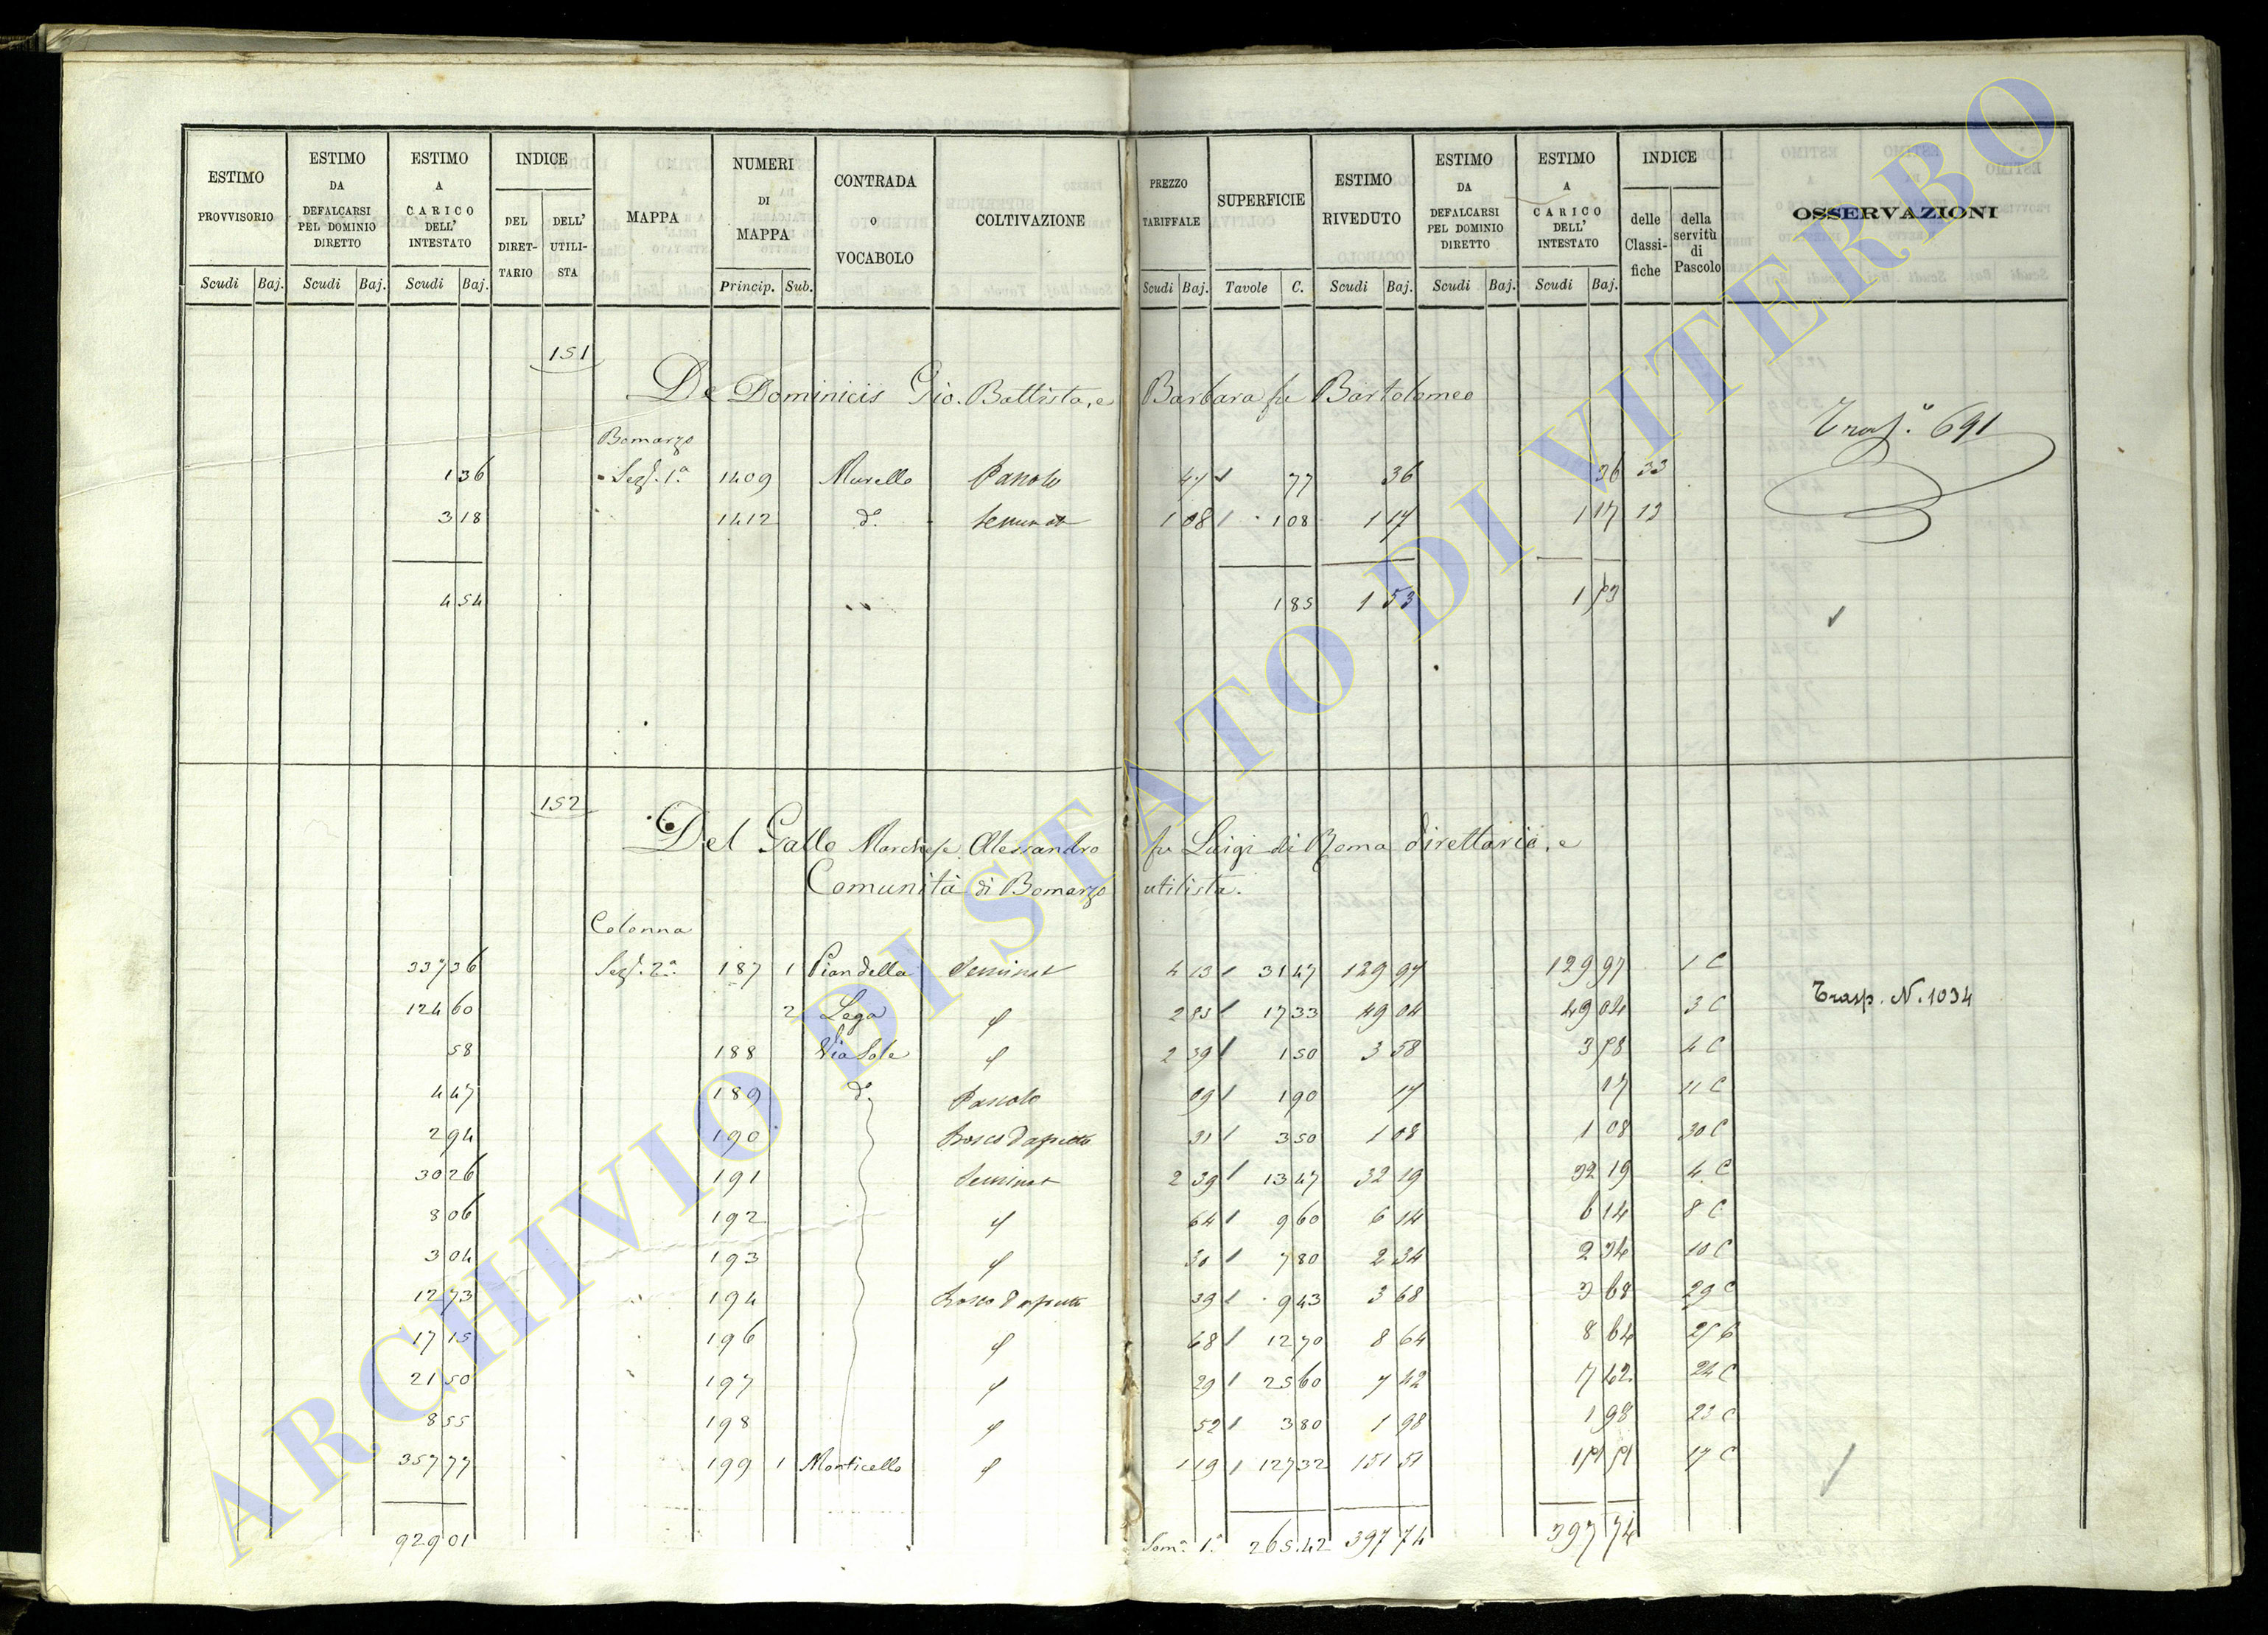 ESTIMO PROVVISORIO Scudi Baj.
ESTIMO DA DEFALCARSI PEL DOMINIO DIRETTO Scudi Baj.
ESTIMO A CARICO DELL' INTESTATO Scudi Baj.
INDICE DEL DIRET-TARIO DELL' UTILI-STA
MAPPA
NUMERI DI MAPPA Princip. Sub.
CONTRADA O VOCABOLO
COLTIVAZIONE
PREZZO TARIFFALE Scudi Baj.
SUPERFICIE Tavole C.
ESTIMO RIVEDUTO Scudi Baj.
ESTIMO DA DEFALCARSI PEL DOMINIO DIRETTO Scudi Baj.
ESTIMO A CARICO DELL' INTESTATO Scudi Baj.
INDICE delle Classi-fiche della servitù di Pascolo
OSSERVAZIONI
151
De Dominicis Gio. Battista, e Barbara fu Bartolomeo
Trasp. 691
Bomarzo
1 36 Sez. 1.a 1409 Murello Pascolo 47 77 36 36 33
3 18 1412 d.o Seminat 1 08 1 08 1 17 1 17 13
4 54 1 85 1 53 1 53
152
Del Gallo Marchese Alessandro fu Luigi di Roma direttario, e
Comunità di Bomarzo utilista.
Colonna
337 36 Sez. 2.a 187 1 Pian della Seminat 4 13 31 47 129 97 129 97 1 C
124 60 2 Lega 2 83 17 33 49 04 49 04 3 C
Trasp. N. 1034
58 188 Via Sole 2 39 1 50 3 58 3 58 4 C
4 47 189 d.o Pascolo 09 1 90 17 17 11 C
2 94 190 Bosco d'aspetto 31 3 50 1 08 1 08 30 C
30 26 191 Seminat 2 39 13 47 32 19 32 19 4 C
8 06 192 64 9 60 6 14 6 14 8 C
3 04 193 30 7 80 2 34 2 34 10 C
12 73 194 Bosco d'aspetto 39 9 43 3 68 3 68 29 C
17 15 196 68 12 70 8 64 8 64
21 50 197 29 25 60 7 42 7 42 24 C
8 55 198 52 3 80 1 98 1 98 23 C
357 77 199 1 Monticello 1 19 127 32 151 51 151 51 17 C
929 01 Som.a 1.a 265.42 397 74 397 74
ARCHIVIO DI STATO DI VITERBO